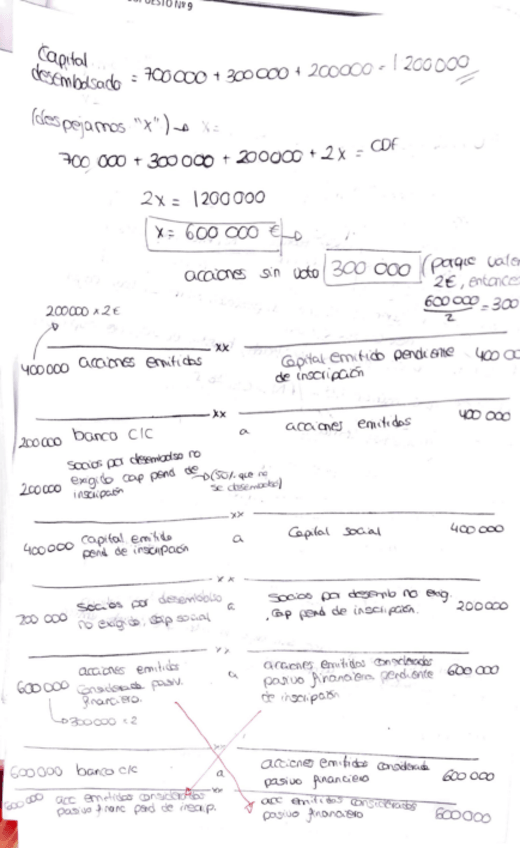 Nº 9
Capital
desembolsado = 700 000 + 300 000 + 200000 = 1 200 000
(despejamos "x") → x=
700 000 + 300 000 + 200000 + 2x = CDF
2x = 1200000
x = 600 000 €
acciones sin voto 300 000 (porque valen
2€, entonces
600 000 / 2 = 300
200000 x 2€
xx
400000 acciones emitidas Capital emitido pendiente 400 00
de inscripción
xx
200000 banco c/c a acciones emitidas 400 000
Socios por desembolso no
exigido cap pend de → (50% que no
200000 inscripción se desembolsó)
xx
400000 Capital emitido a Capital social 400 000
pend de inscripción
xx
200 000 Socios por desembolso a Socios por desemb no exig.
no exigido, cap social , cap pend de inscripción. 200000
xx
acciones emitidas a acciones emitidas consideradas
600 000 considerada pasiv. pasivo financiera pendiente 600 000
financiero. de inscripción
→ 300000 x 2
600 000 banco c/c a acciones emitidas considerada 600 000
pasivo financiero
xx
600 000 acc emitidas consideradas acc emitidas consideradas
pasivo financ pend de inscrip. pasivo financiero 600 000